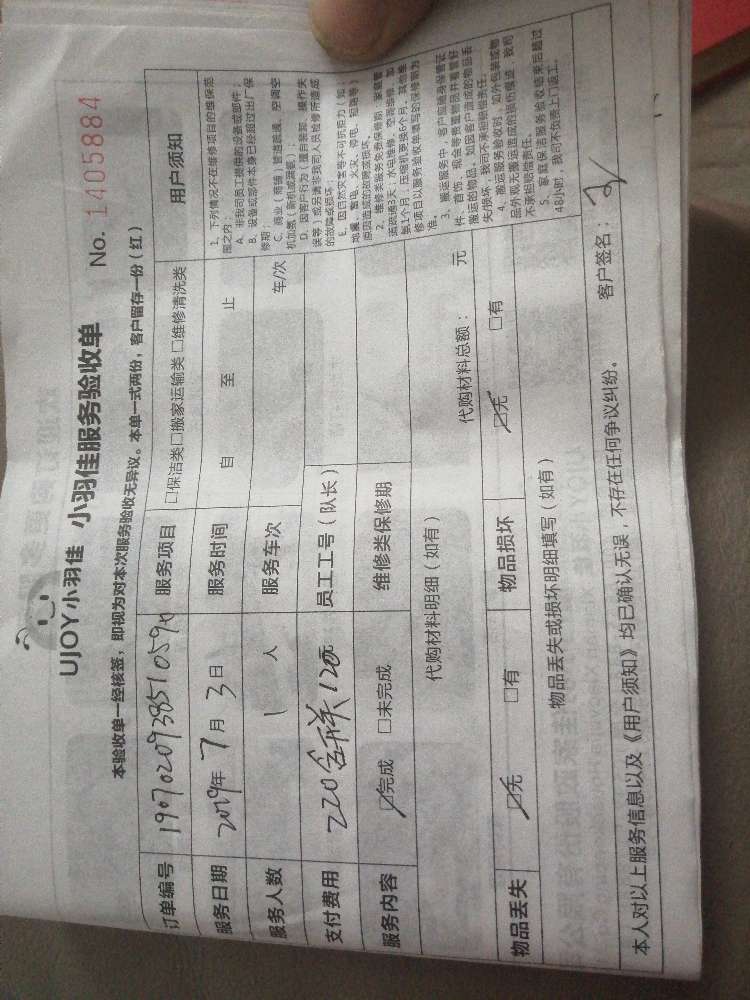 UJOY小羽佳 小羽佳服务验收单 No. 1405884
本验收单一经核签，即视为对本次服务验收无异议。本单一式两份，客户留存一份（红）
订单编号 服务项目 □保洁类□搬家运输类□维修清洗类
服务日期 2019年 7 月 3 日 服务时间 自 至 止
服务人数 1 人 服务车次 车/次
支付费用 220 120元 员工工号（队长）
服务内容 ☑完成 □未完成 维修类保修期
代购材料明细（如有） 代购材料总额： 元
物品丢失 ☑无 □有 物品损坏 ☑无 □有
物品丢失或损坏明细填写（如有）
用户须知
1、下列情况不在维修项目的维保范
围之内：
A、非我司员工提供的设备或部件；
B、设备或部件本身已经超过出厂保
修期；
C、商业（商铺）管道疏通、空调空
机加氨（新机或漏氨）
D、因客户行为（擅自装卸、操作失
误等）或另请非我司人员检修所造成
的故障或损坏；
E、因自然灾害等不可抗拒力（如：
地震、雷电、火灾、停电、短路等）
原因造成的故障或损坏。
2、维修类服务免费保修期：家庭管
道疏通3天，水电维修、空调维修、加
氨1个月，压缩机更换6个月，其他维
修项目以服务验收单填写的保修期为
准。
3、搬运服务中，客户应随身保管证
件、首饰、现金等贵重物品并看管好
搬运的物品，如因客户造成的物品丢
失/损坏，我司不承担赔偿责任。
4、搬运服务验收时，如外包装或物
品外观无搬运造成的损伤痕迹，我司
不承担赔偿责任。
5、家庭保洁服务验收结束后超过
48小时，我司不负责上门返工。
本人对以上服务信息以及《用户须知》均已确认无误，不存在任何争议纠纷。 客户签名：